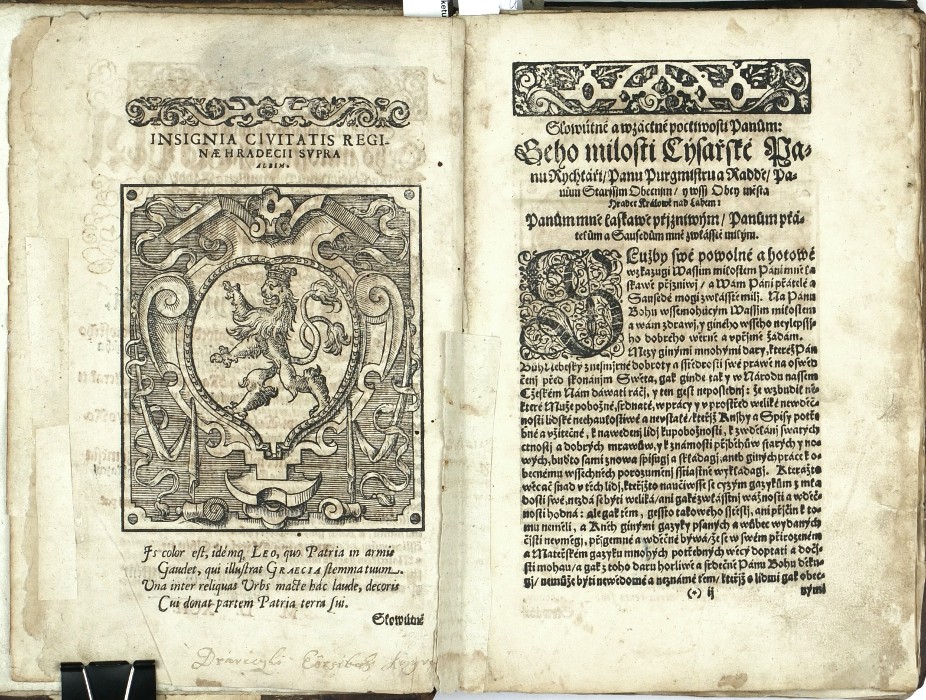 INSIGNIA CIVITATIS REGI-
NÆHRADECII SVPRA
ALBIM.
Is color est, idémq; LEO, quo Patria in armis
Gaudet, qui illustrat GRAECIA stemma tuum.
Una inter reliquas Urbs macte hác laude, decoris
Cui donat partem Patria terra sui.
Slowútné
Slowútné a wzáctné poctiwosti Panům:
Geho milosti Cysařské Pa-
nu Rychtáři / Panu Purgmistru a Radde / Pa-
nům Starssim Obecnim / y wssj Obcy města
Hradce Králowé nad Labem:
Panům mně laskawě přjzniwým / Panům přá-
telům a Sausedům mně zwlásstě milým.
SLužby swé powolné a hotowé
wzkazugi Wassim milostem Páni mně la-
skawě přjzniwj / a Wám Páni přátelé a
Sausedé mogi zwlásstě milj. Na Panu
Bohu wssemohúcym Wassim milostem
a wám zdrawj, y giného wsseho neylepssj-
ho dobrého wěrně a vpřjmě žádám.
Mezy ginými mnohými dary, kteréž Pán
Bůh Nebeský z nesmjrné dobroty a sstědrosti swé práwě na oswěd-
čenj před skonánjm Swěta, gak ginde tak y w Národu nassem
Cžeském Nám dáwati ráčj, y ten gest neposlednj: že wzbudil ně-
které Muže pobožné, srdnaté, w prácy y v prostřed weliké newděč-
nosti lidské neohautostiwé a nevstalé / kteřjž Knihy a Spisy potře-
bné a vžitečné, k nawedenj lidj ku pobožnosti, k wzdělánj swatých
ctnostj a dobrých mrawůw, y k známosti přjběhůw starých y no-
wých, buďto sami znowa spisugj a skládagj, aneb giných práce k o-
becnému wssechněch porozuměnj ssťastně wykládagj. Kterážto
wěc ač snad v těch lidj, kteřjžto naučiwsse se cyzým gazykům z mla-
dosti swé, nezdá se býti weliká / ani gaké zwlásstnj wážnosti a wděč-
nosti hodná: ale gak těm, gessto takowého sstěstj, ani přjčin k to-
mu neměli, a Kněh ginými gazyky psaných a wůbec wydaných
čjsti nevměgj, přjgemné a wděčné býwá / že se w swém přirozeném
a Mateřském gazyku mnohých potřebných wěcý doptati a dočj-
sti mohau / a gak z toho daru horliwě a srdečně Pánu Bohu děku-
gj / nemůže býti newědomé a neznámé těm / kteřjž s lidmi gak obec-
(*) ij
nými